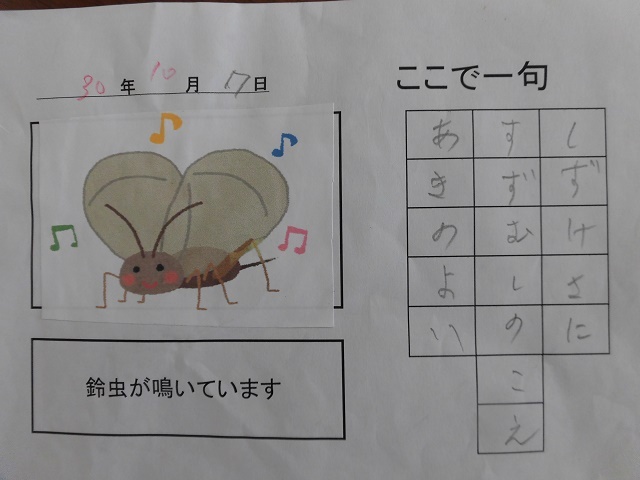 30年10月17日
ここで一句
しずけさに
すずむしのこえ
あきのよい
鈴虫が鳴いています